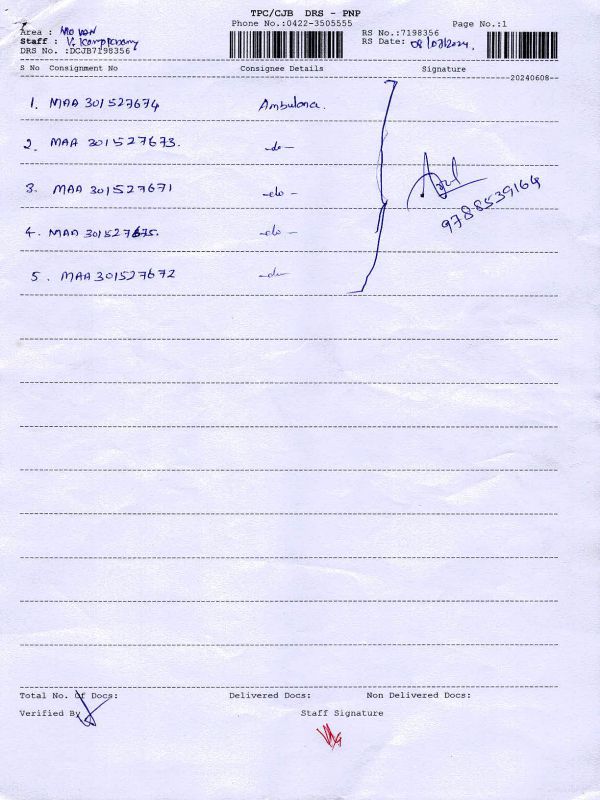 TPC/CJB DRS - PNP
Phone No.:0422-3505555 Page No.:1
Area : MO VAN RS No.:7198356
Staff : V. RS Date: 08/07/2024.
DRS No. :DCJB7198356
S No Consignment No Consignee Details Signature
20240608
1. MAA 301527674 Ambulona.
2. MAA 301527673. -do-
3. MAA 301527671 -do-
4. MAA 301527675. -do-
5. MAA 301527672 -do-
9788539164
Total No. of Docs: Delivered Docs: Non Delivered Docs:
Verified By Staff Signature